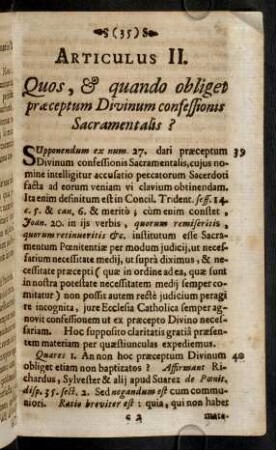 (35)
ARTICULUS II.
Quos, & quando obliget
præceptum Divinum confessionis
Sacramentalis ?
SUpponendum ex num. 27. dari præceptum 39
Divinum confessionis Sacramentalis, cujus no-
mine intelligitur accusatio peccatorum Sacerdoti
facta ad eorum veniam vi clavium obtinendam.
Ita enim definitum est in Concil. Trident. sess. 14.
c. 5. & can. 6. & meritò ; cùm enim constet ,
Joan. 20. in ijs verbis, quorum remiseritis ,
quorum retinueritis &c. institutum esse Sacra-
mentum Pœnitentiæ per modum judicij, ut neces-
sarium necessitate medij, ut suprà diximus , & ne-
cessitate præcepti ( quæ in ordine ad ea, quæ sunt
in nostra potestate necessitatem medij semper co-
mitatur ) non possit autem rectè judicium peragi
re incognita , jure Ecclesia Catholica semper ag-
novit confessionem ut ex præcepto Divino neces-
sariam. Hoc supposito claritatis gratiâ præsen-
tem materiam per quæstiunculas expediemus.
Quæres 1. An non hoc præceptum Divinum 40
obliget etiam non baptizatos ? Affirmant Ri-
chardus, Sylvester & alij apud Suarez de Pœnit.
disp. 35. sect. 2. Sed negandum est cum commu-
niori. Ratio breviter est : quia, qui non habet
c 2 mate-